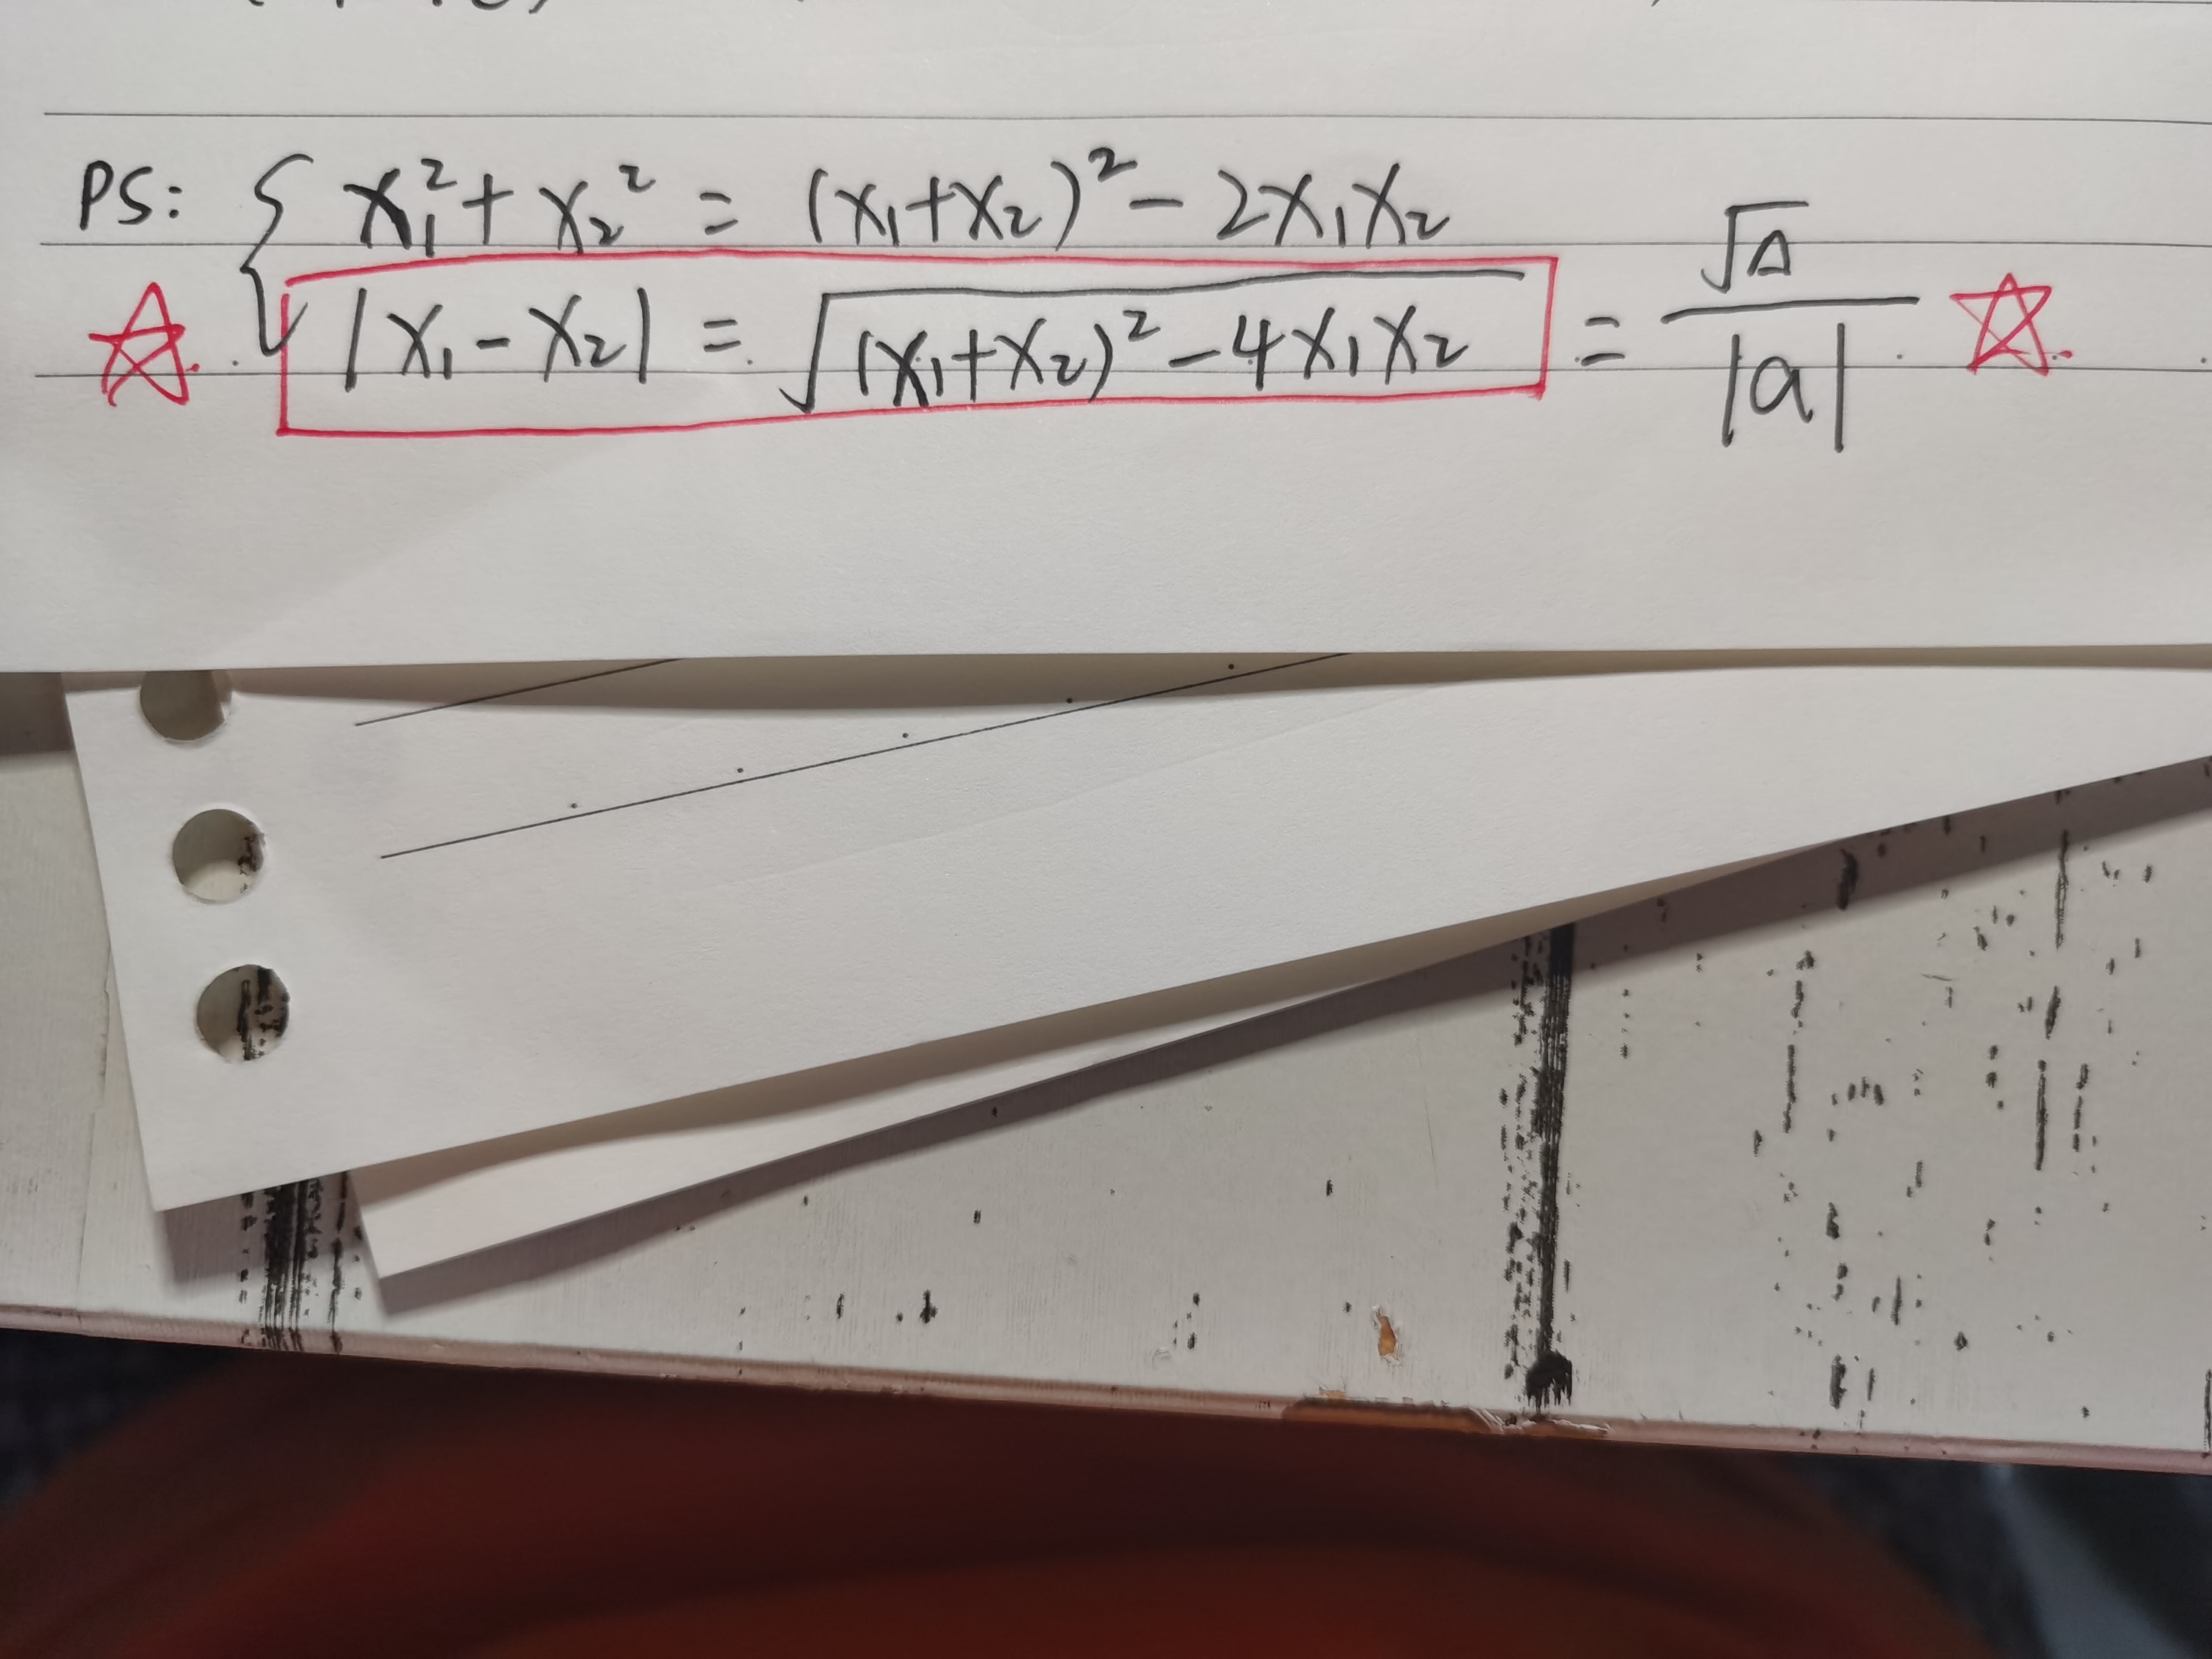 PS: { x₁² + x₂² = (x₁+x₂)² - 2x₁x₂
☆ |x₁ - x₂| = √((x₁+x₂)² - 4x₁x₂) = √Δ / |a| ☆